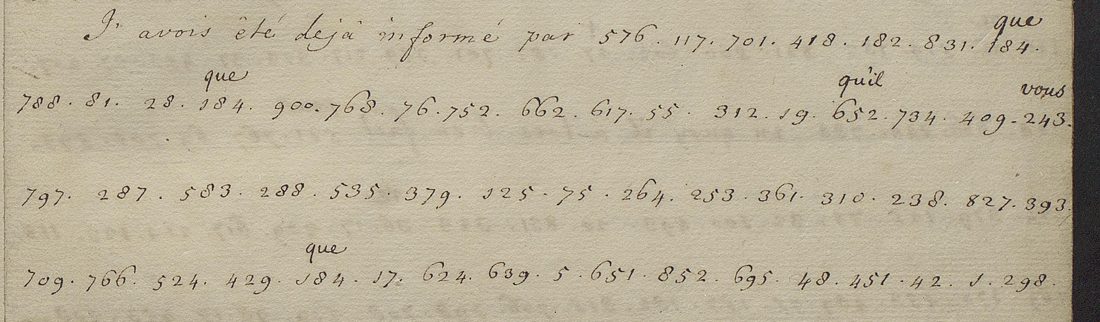 que
J'avois été dejà informé par 576. 117. 701. 418. 182. 831. 184.
que qu'il vous
788. 81. 28. 184. 900. 768. 76. 752. 662. 617. 55. 312. 19. 652. 734. 409. 243.
797. 287. 583. 288. 535. 379. 125. 75. 264. 253. 361. 310. 238. 827. 393.
que
709. 766. 524. 429. 184. 17. 624. 639. 5. 651. 852. 695. 48. 451. 42. 1. 298.